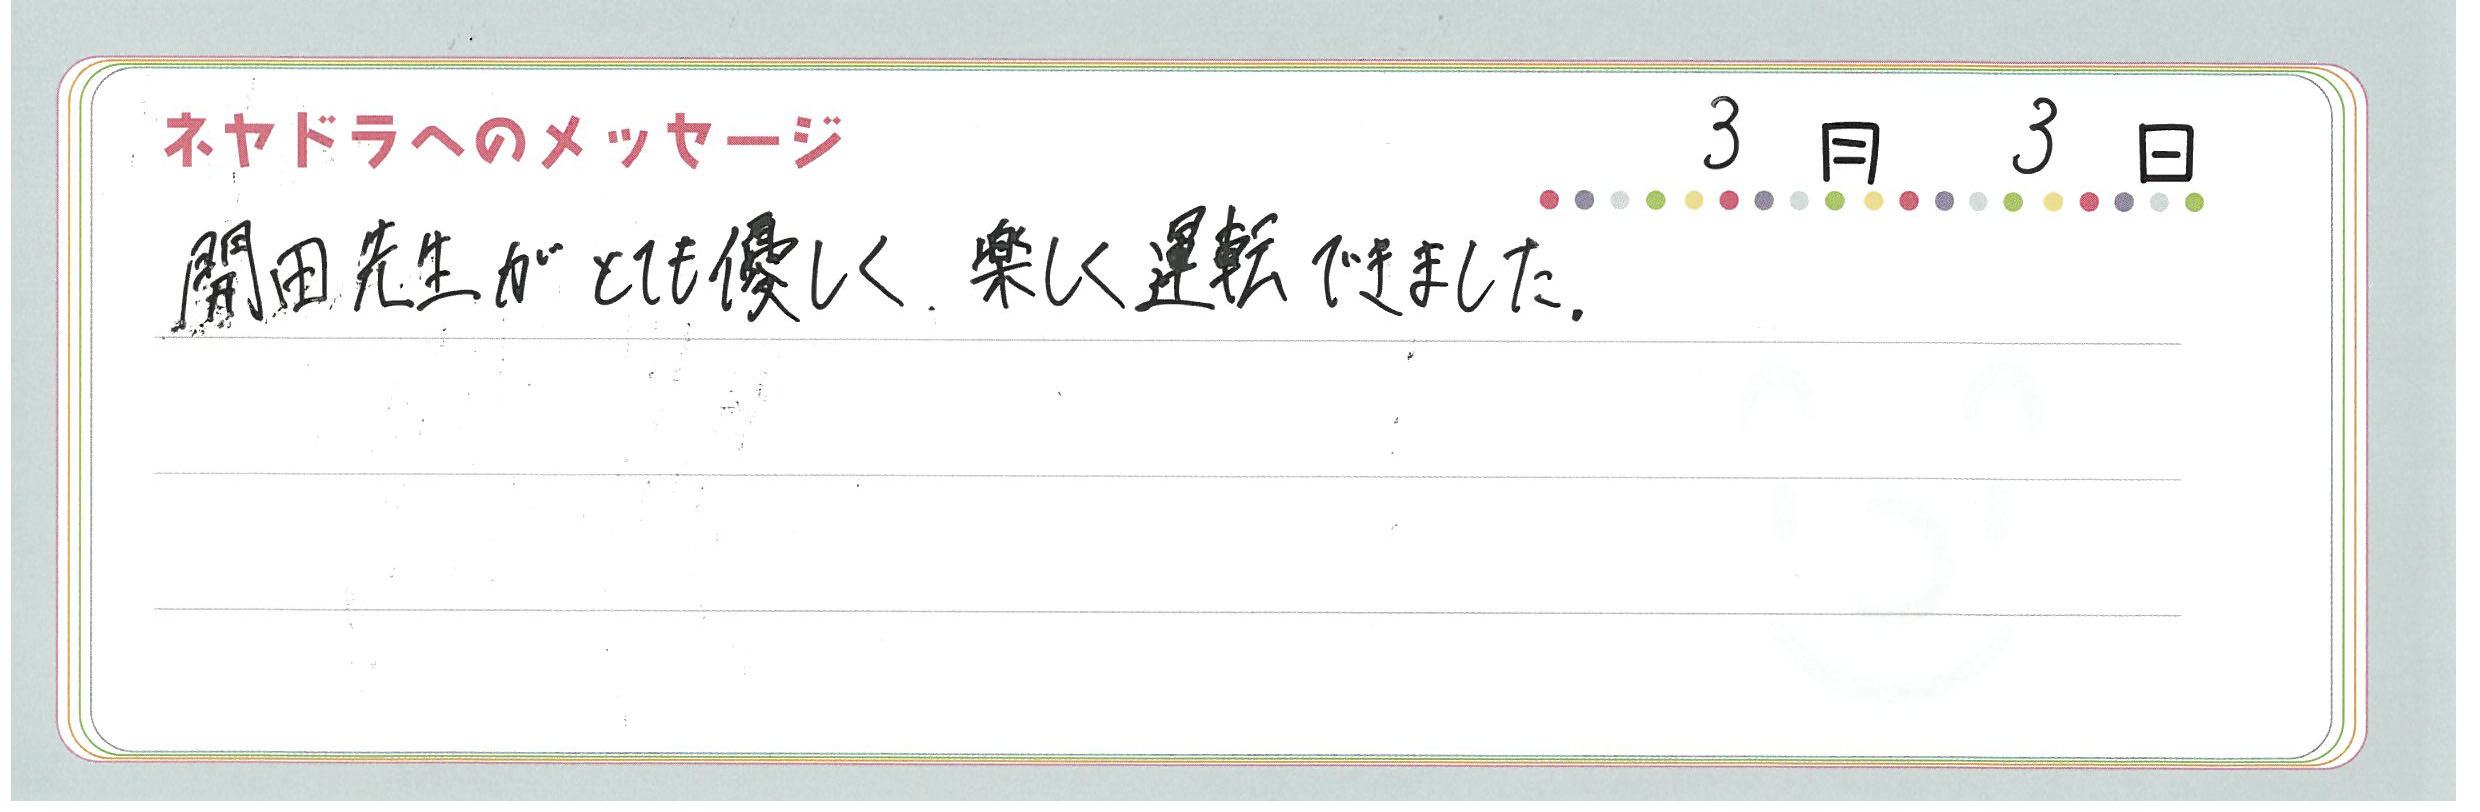 ネヤドラへのメッセージ
3月 3日
開田先生がとても優しく、楽しく運転できました。